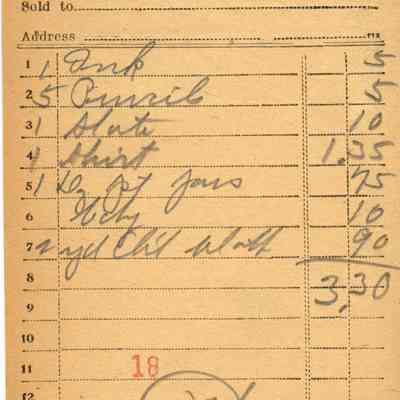 Sold to
Address
1 1 Ink 5
2 5 Pencils 5
3 1 Slate 10
4 1 Shirt 1.35
5 1 Dz pt Jars 75
6 10
7 yd Oil 90
8 3,30
9
10
11 18
12